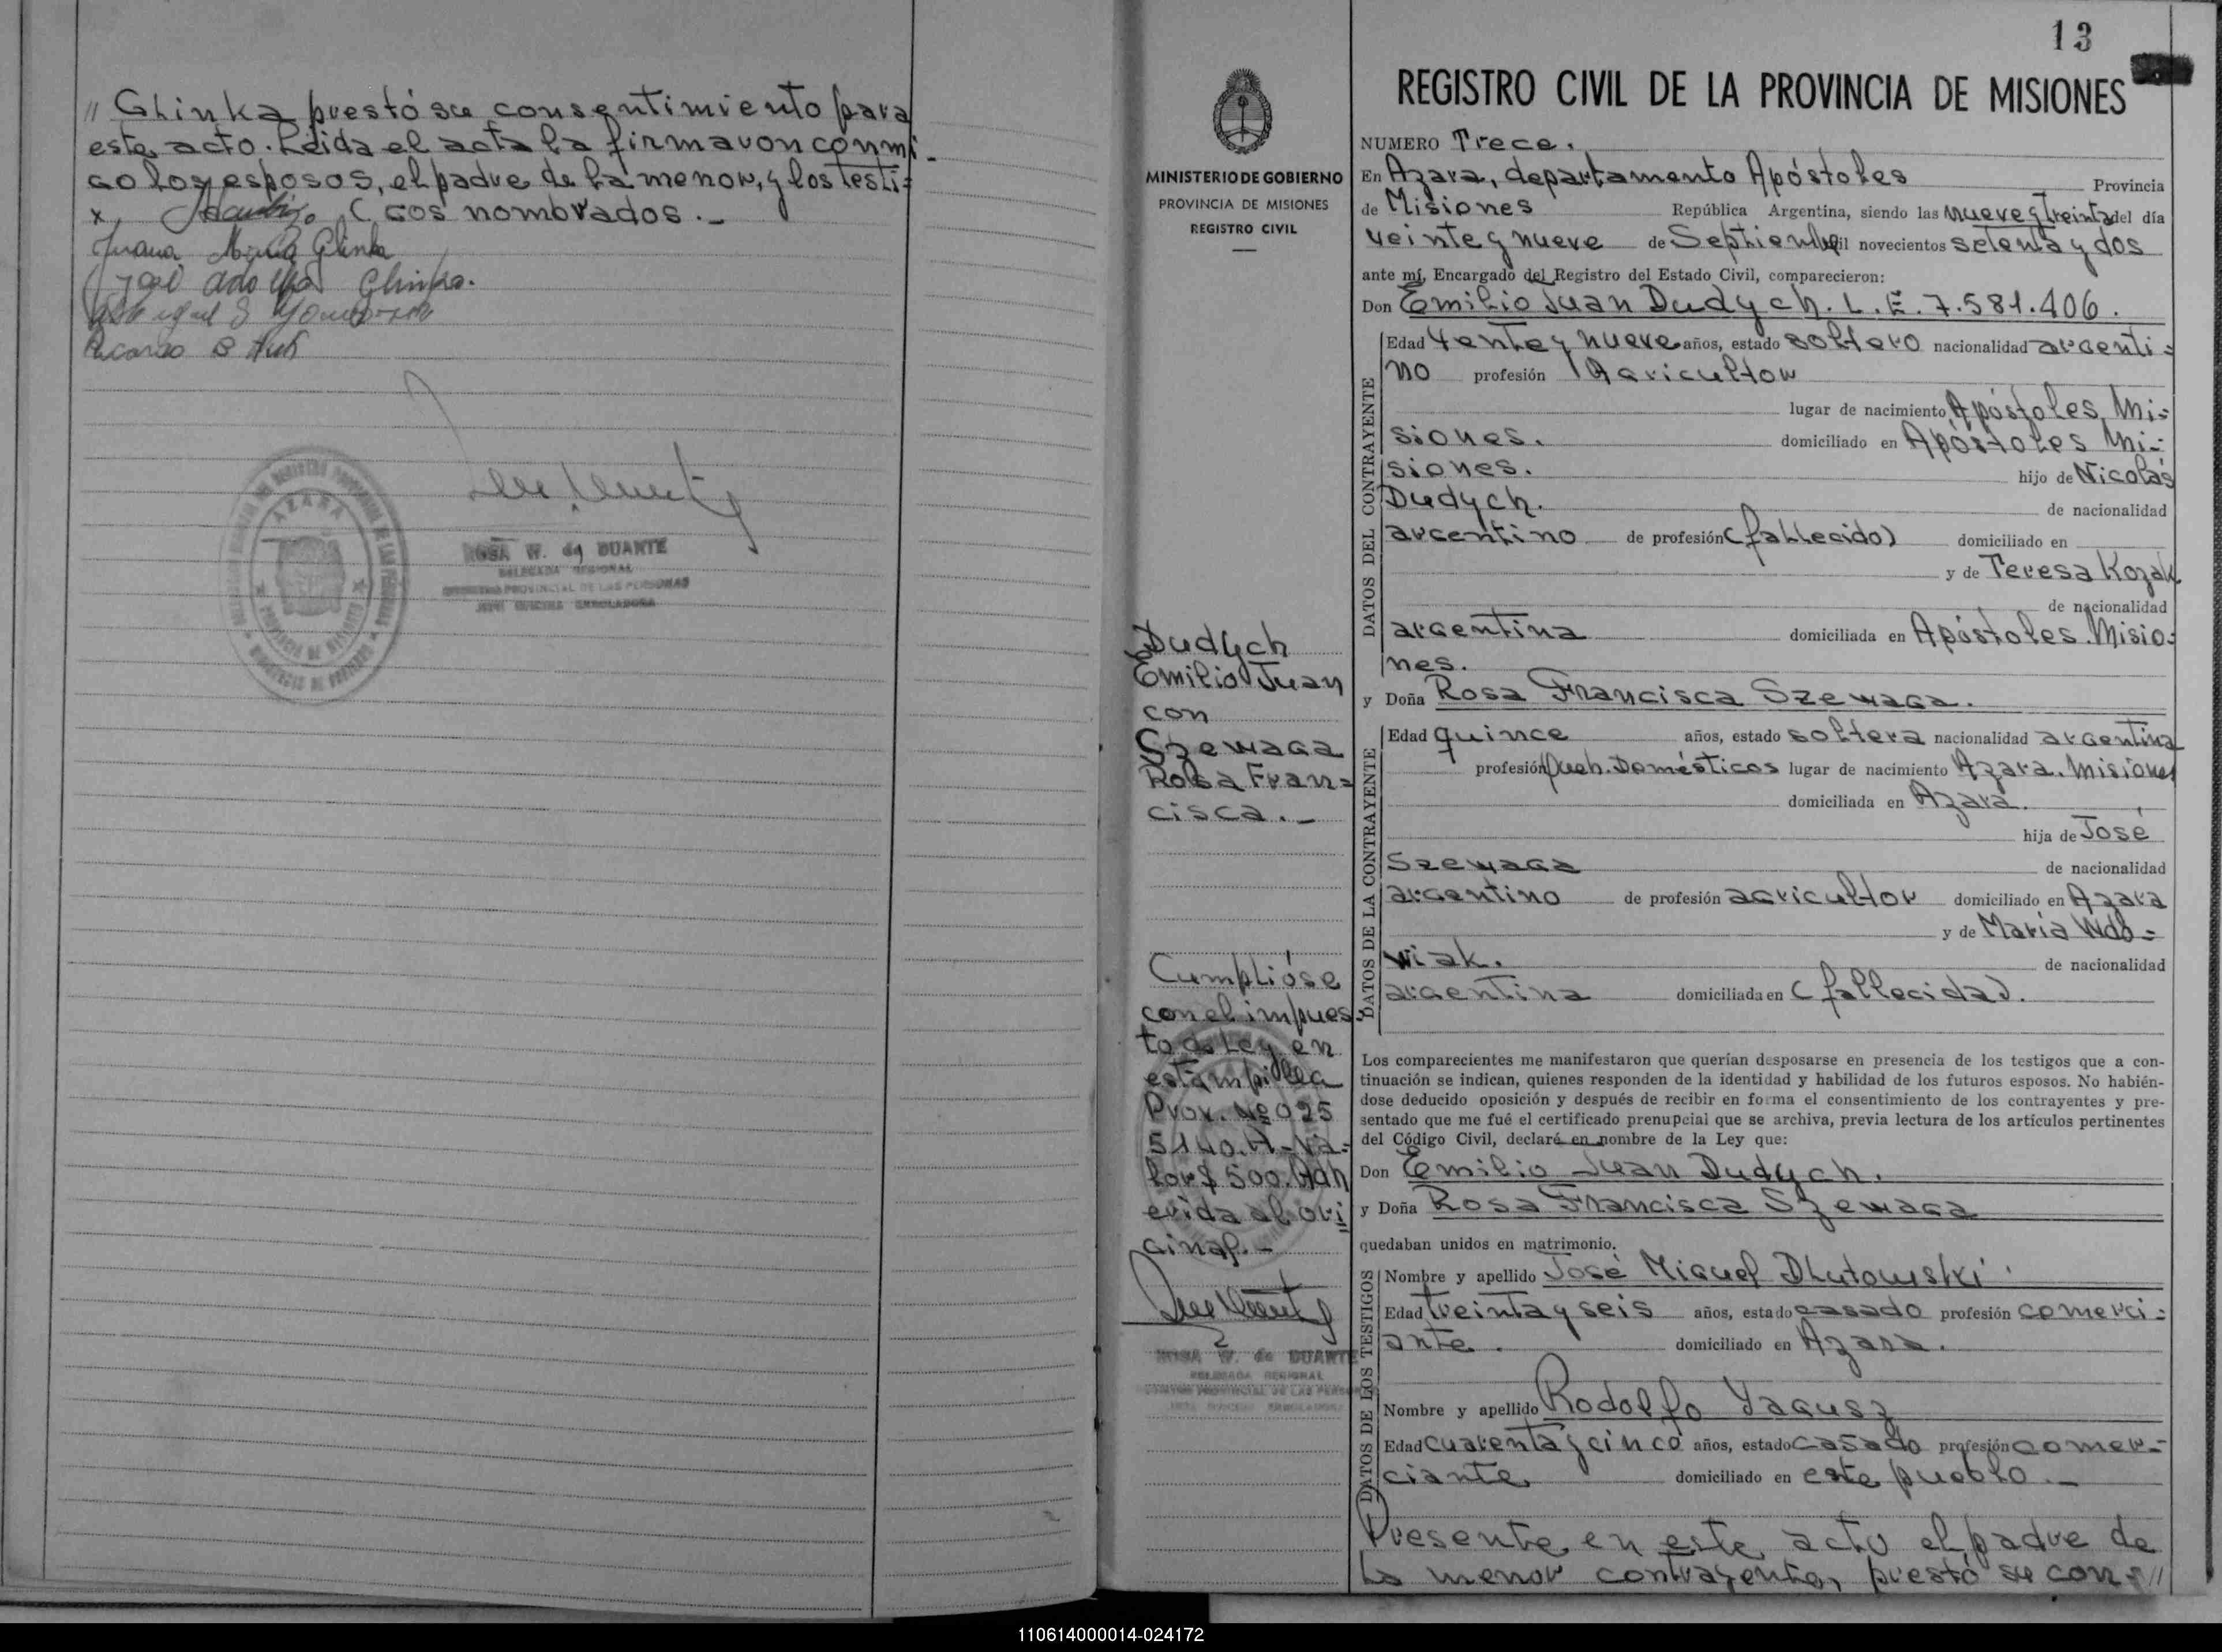 // Glinka prestó su consentimiento para
este acto. Leida el acta la firmaron conmi-
go los esposos, el padre de la menor, y los testi=
x, ( gos nombrados._
Juana María Glinka
José Adolfo Glinka.
Ricardo B
AZARA
PROVINCIA DE MISIONES
ROSA W. de DUARTE
DELEGADA REGIONAL
REGISTRO PROVINCIAL DE LAS PERSONAS
JEFE OFICINA ENROLADORA
MINISTERIO DE GOBIERNO
PROVINCIA DE MISIONES
REGISTRO CIVIL
Dudych
Emilio Juan
con
Szewaga
Rosa Fran=
cisca._
Cumplióse
con el impues-
to de Ley en
estampilla
Prov. Nº 025
5140.A-Va=
lor $ 500. Adh
erida al ori
ginal._
ROSA W. de DUARTE
DELEGADA REGIONAL
13
REGISTRO CIVIL DE LA PROVINCIA DE MISIONES
NUMERO Trece.
En Azara, departamento Apóstoles Provincia
de Misiones República Argentina, siendo las nueve y treinta del día
veinte y nueve de Septiembre mil novecientos setenta y dos
ante mí, Encargado del Registro del Estado Civil, comparecieron:
Don Emilio Juan Dudych. L.E. 7.581.406.
DATOS DEL CONTRAYENTE
Edad veinte y nueve años, estado soltero nacionalidad argenti=
no profesión Agricultor
lugar de nacimiento Apóstoles, Mi=
siones. domiciliado en Apóstoles Mi=
siones. hijo de Nicolás
Dudych. de nacionalidad
argentino de profesión (fallecido) domiciliado en
y de Teresa Kozak
de nacionalidad
argentina domiciliada en Apóstoles. Misio=
nes.
y Doña Rosa Francisca Szewaga.
DATOS DE LA CONTRAYENTE
Edad quince años, estado soltera nacionalidad argentina
profesión Queh. Domésticos lugar de nacimiento Azara. Misiones
domiciliada en Azara.
hija de José
Szewaga de nacionalidad
argentino de profesión agricultor domiciliado en Azara
y de María Wdo=
wiak. de nacionalidad
argentina domiciliada en (fallecida).
Los comparecientes me manifestaron que querían desposarse en presencia de los testigos que a con-
tinuación se indican, quienes responden de la identidad y habilidad de los futuros esposos. No habién-
dose deducido oposición y después de recibir en forma el consentimiento de los contrayentes y pre-
sentado que me fué el certificado prenupcial que se archiva, previa lectura de los artículos pertinentes
del Código Civil, declaré en nombre de la Ley que:
Don Emilio Juan Dudych.
y Doña Rosa Francisca Szewaga
quedaban unidos en matrimonio.
DATOS DE LOS TESTIGOS
Nombre y apellido José Miguel Dlutowski
Edad treinta y seis años, estado casado profesión comerci=
ante. domiciliado en Azara.
Nombre y apellido Rodolfo Yagusz
Edad cuarenta y cinco años, estado casado profesión comer=
ciante domiciliado en este pueblo._
Presente en este acto el padre de
la menor contrayente, prestó su con=//
110614000014-024172